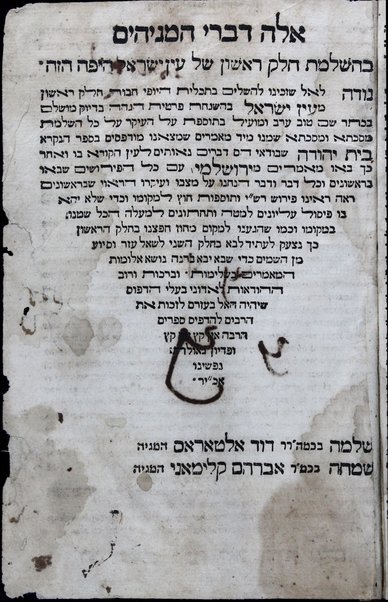 אלה דברי המגיהים
בהשלמת חלק ראשון של עין ישראל היפה הזה׃
נודה לאל שזכינו להשלים בתכלית היופי חבור חלק ראשון
מעין ישראל בהשגחה פרטית הגהה בדיוק מושלם
בכתר שם טוב ערב ומועיל בתוספת על העיקר על כל השלמת
מסכתא ומסכתא שמנו מיד מאמרים שמצאנו מודפסים בספר הנקרא
בית יהודה שבודאי הם דברים נאותים לעין הקורא בו ואחר
כך באו מאמרים מירושלמי עם כל הפירושים שבאו
בראשונים וכל דבר ודבר הנחנו על מצבו ועיקרו הראוי שבראשונים
ראה ראינו פירוש רש״י ותוספות חוץ למקומו וכדי שלא יהא
בו פיסול עליונים למטה ותחתונים למעלה הכל שמנו
במקומו וכמו שהגענו למקום מחוז חפצנו בחלק הראשון
כך נצעק לעתיד לבא בחלק השני לשאל עזר וסיוע
מן השמים כדי שבא יבא ברנה נושא אלומות
המאמרים בשלימות וברכות ורוב
ההודאות לאדוני בעלי הדפוס
שיהיה האל בעזרם לזכות את
הרבים להדפיס ספרים
הרבה אין קץ
ופדיון
נפשינו
אכי״ר
שלמה בכמה״רר דוד אלטאראס המגיה
שמחה בכמ״ר אברהם קלימאני המגיה